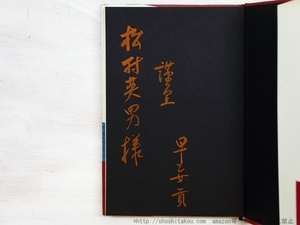 謹呈
早乙女貢
松村英男様
http://shoshitakou.com amazon